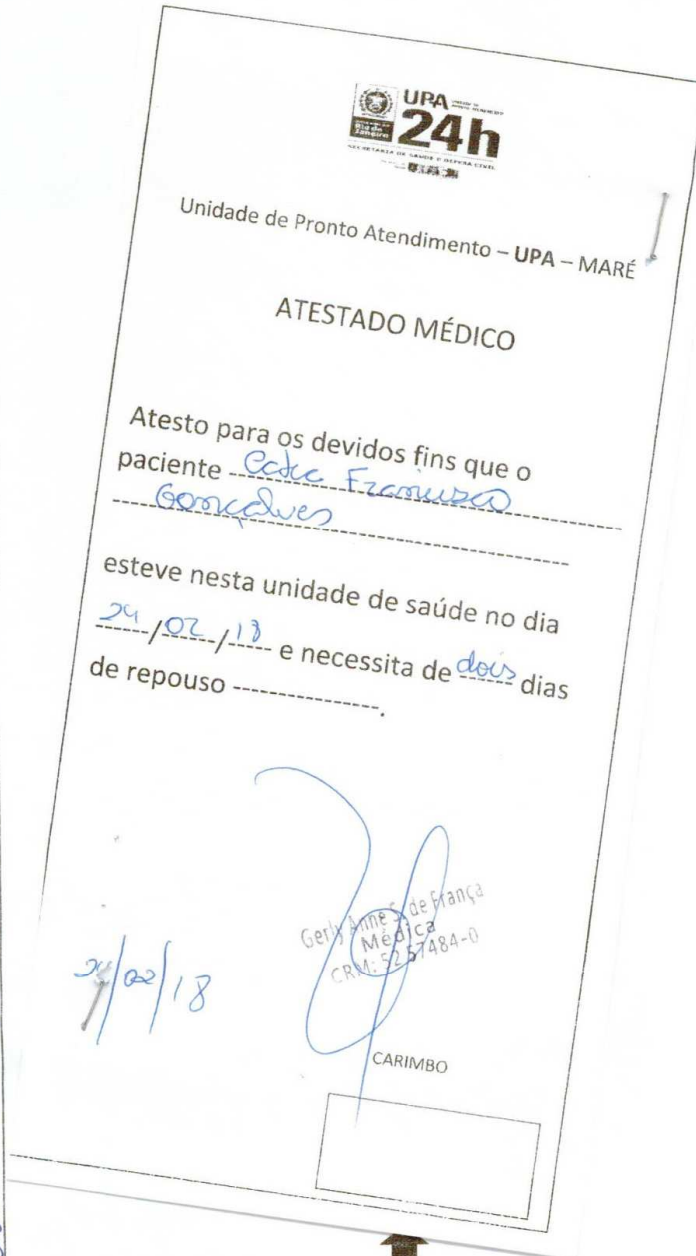 UPA
24h
SECRETARIA DE SAÚDE E DEFESA CIVIL
Unidade de Pronto Atendimento – UPA – MARÉ
ATESTADO MÉDICO
Atesto para os devidos fins que o
paciente Francisco
Gonçalves
esteve nesta unidade de saúde no dia
24/02/18 e necessita de dois dias
de repouso ----------------.
Gerly Anne S. de França
Médica
CRM: 5257484-0
24/02/18
CARIMBO